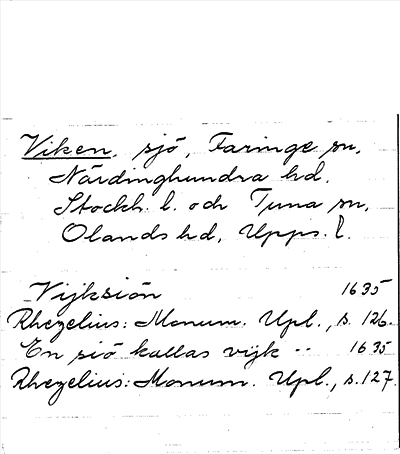 Viken, sjö, Faringe sn,
Närdinghundra hd,
Stockh. l. och Tuna sn,
Olands hd, Upps. l.
Vijksiön 1635
Rhezelius: Monum. Upl., s. 126.
En siö kallas vijk -- 1635
Rhezelius: Monum. Upl., s. 127.